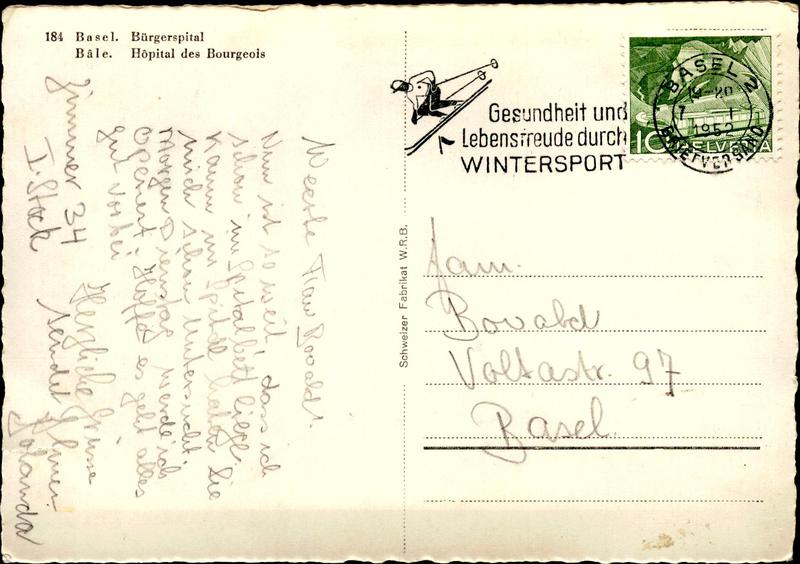 184 Basel. Bürgerspital
Bâle. Hôpital des Bourgeois
Gesundheit und
Lebensfreude durch
WINTERSPORT
BASEL 2
19-20
7 I
1952
BRIEFVERSAND
10 HELVETIA
Schweizer Fabrikat W.R.B.
Fam.
Bowald
Voltastr. 97
Basel.
Zimmer 34
I. Stock
Weerte Frau Bowald!
Nun ist so weit, dass ich
schon im Spitalbett liege.
Kaum im Spital haben Sie
mich schon Untersucht.
Morgen Dienstag werde ich
Operiert Hoffe es geht alles
gut vorbei
Herzliche Grüsse
sendet Ihnen
Jolanda